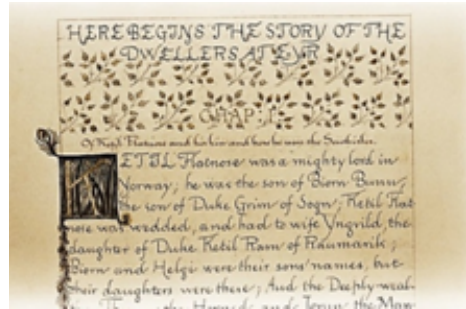 HERE BEGINS THE STORY OF THE
DWELLERS AT EYR
CHAP: I.
Of Ketil Flatnose and his kin and how he won the Southisles.
KETIL Flatnose was a mighty lord in
Norway; he was the son of Biorn Bunu,
the son of Duke Grim of Sogn; Ketil Flat
nose was wedded, and had to wife Yngvild, the
daughter of Duke Ketil Ram of Raumarik;
Biorn and Helgi were their sons' names, but
their daughters were these; Aud the Deeply-weal-
the Horned, and Jorun the Man